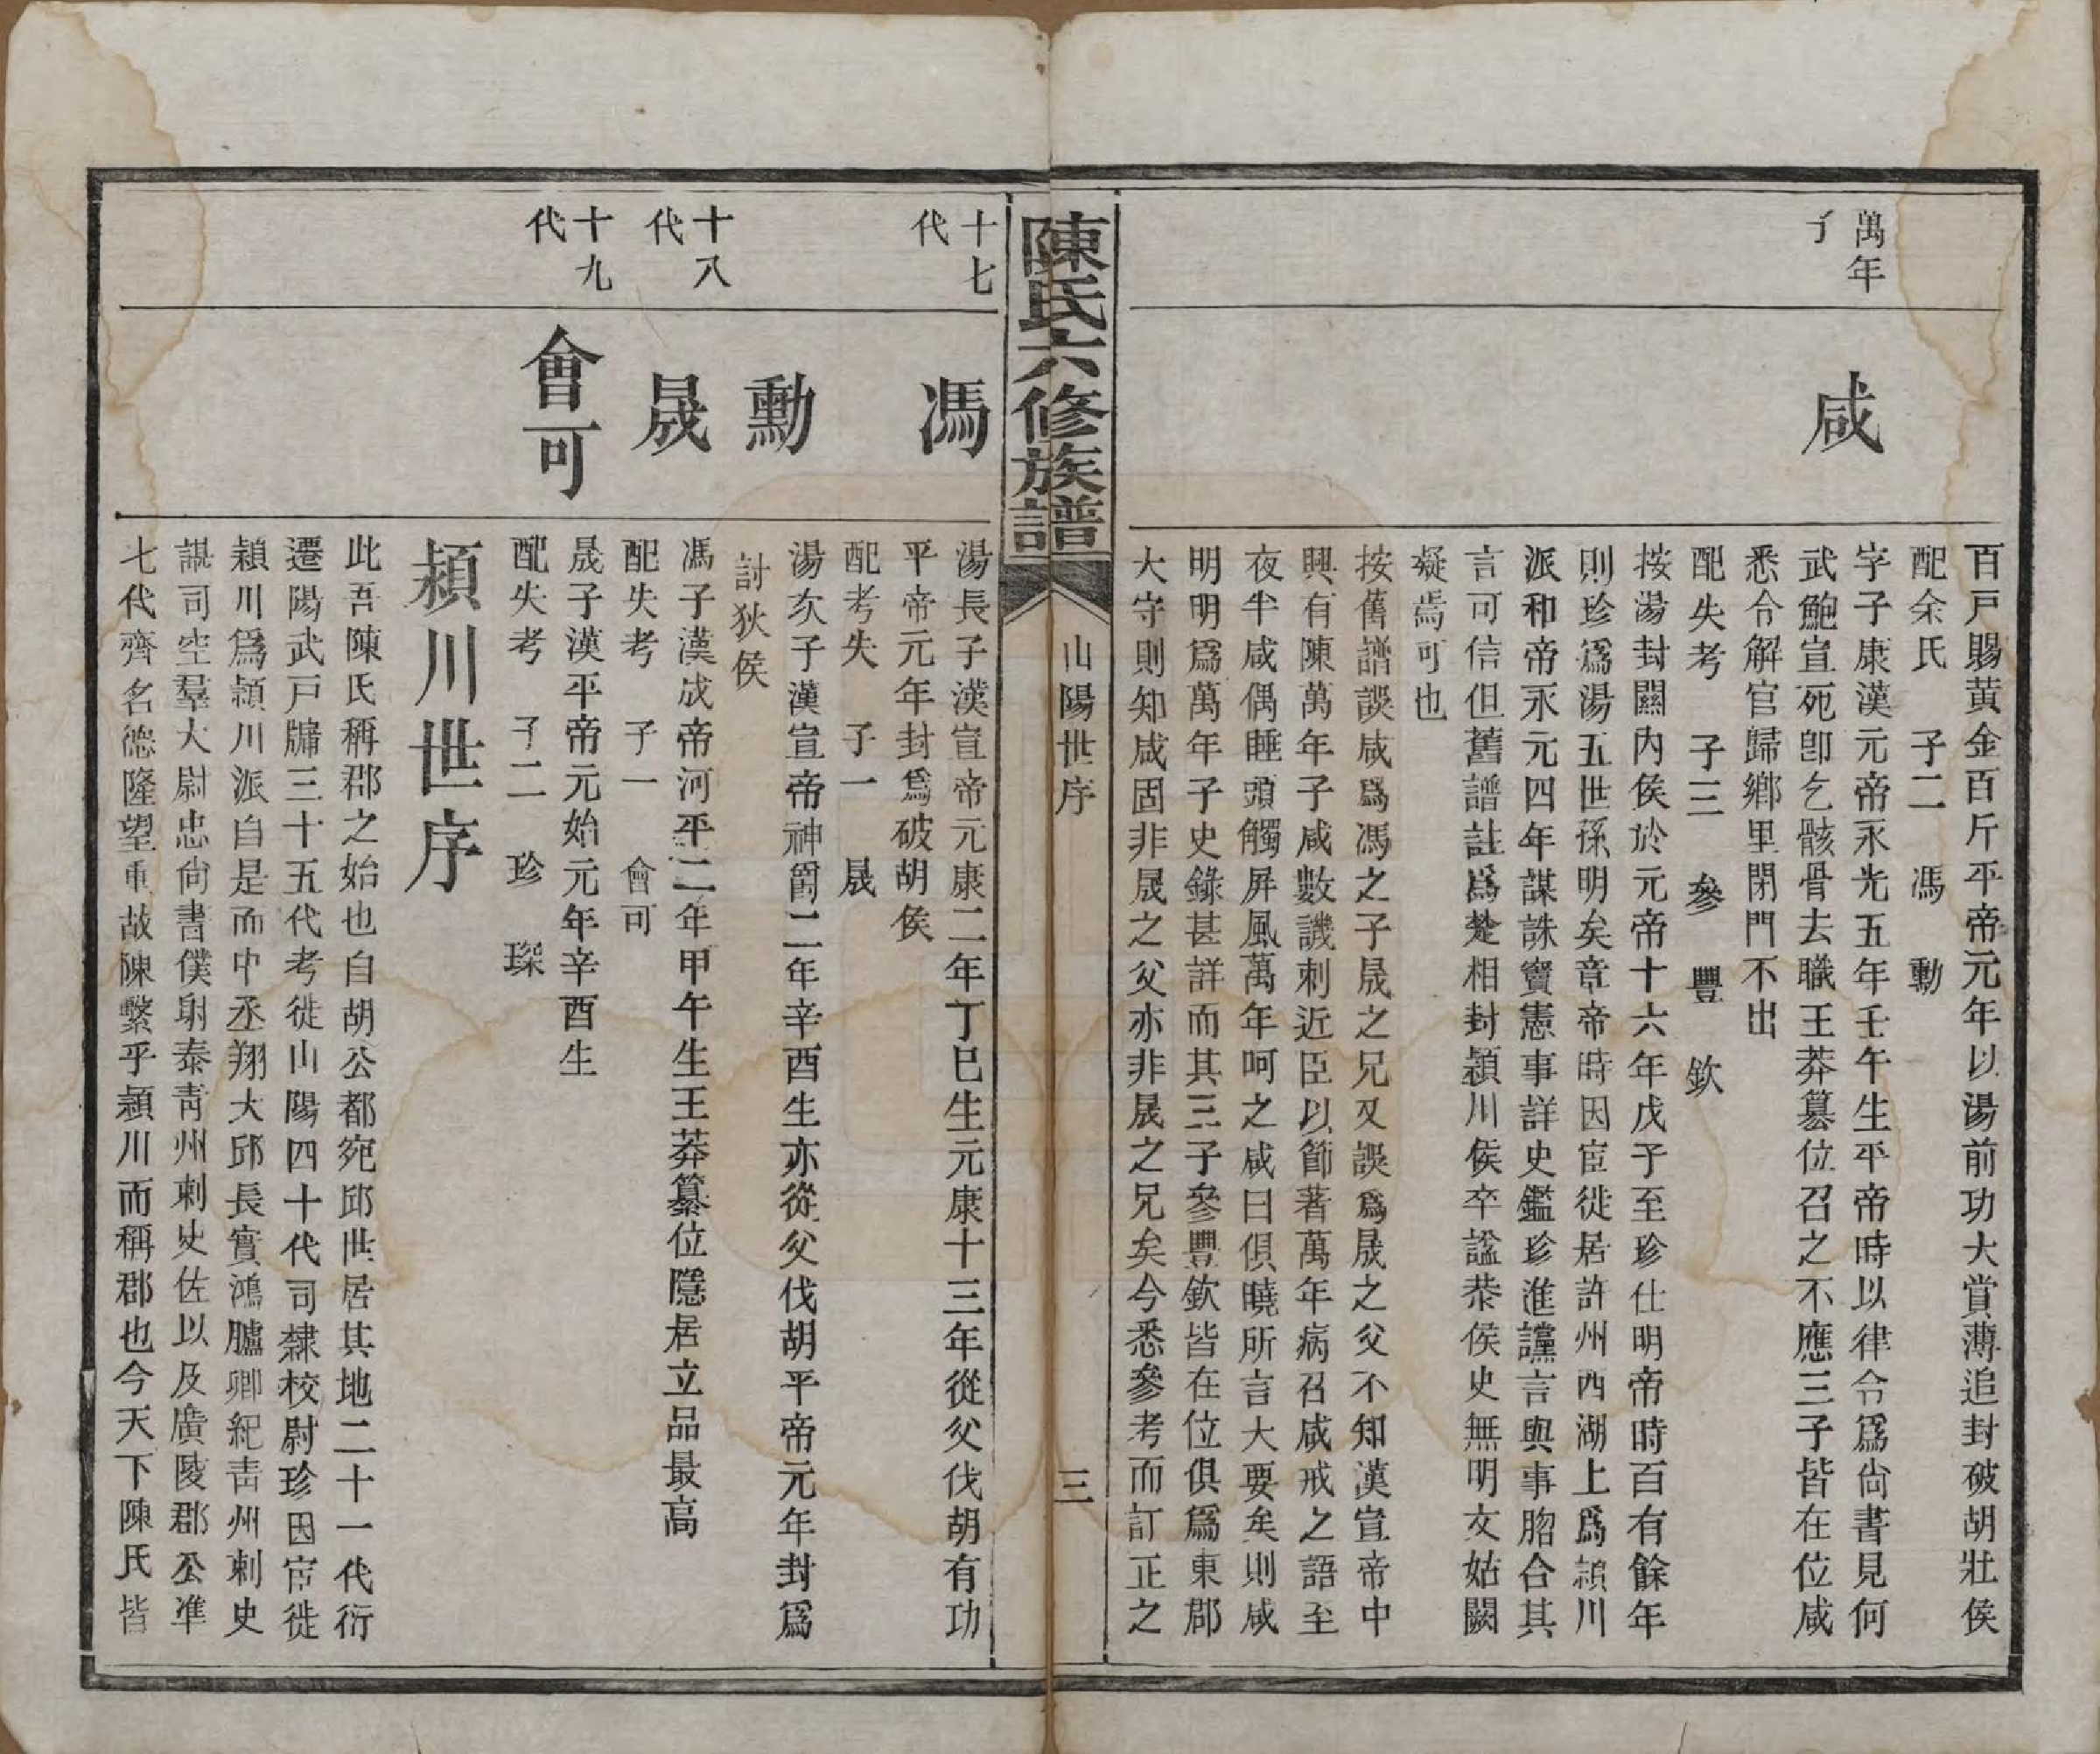 百戸賜黃金百斤平帝元年以湯前功大賞薄追封破胡壯侯
配余氏　子二　馮　勳
萬年
子
咸
字子康漢元帝永光五年壬午生平帝時以律令爲尙書見何
武鮑宣死卽乞骸骨去職王莽篡位召之不應三子皆在位咸
悉令解官歸鄉里閉門不出
配失考　子三　參　豐　欽
按湯封關內侯於元帝十六年戊子至珍仕明帝時百有餘年
則珍爲湯五世孫明矣章帝時因宦徙居許州西湖上爲潁川
派和帝永元四年謀誅竇憲事詳史鑑珍進讜言與事脗合其
言可信但舊譜註爲楚相封潁川侯卒謚恭侯史無明文姑闕
疑焉可也
按舊譜誤咸爲馮之子晟之兄又誤爲晟之父不知漢宣帝中
興有陳萬年子咸數譏刺近臣以節著萬年病召咸戒之語至
夜半咸偶睡頭觸屛風萬年呵之咸曰俱曉所言大要矣則咸
明明爲萬年子史錄甚詳而其三子參豐欽皆在位俱爲東郡
大守則知咸固非晟之父亦非晟之兄矣今悉參考而訂正之
陳氏六修族譜
山陽世序
三
十七
代
馮
湯長子漢宣帝元康二年丁巳生元康十三年從父伐胡有功
平帝元年封爲破胡侯
配考失　子一　晟
勳
湯次子漢宣帝神爵二年辛酉生亦從父伐胡平帝元年封爲
討狄侯
十八
代
晟
馮子漢成帝河平二年甲午生王莽纂位隱居立品最高
配失考　子一　會可
十九
代
會可
晟子漢平帝元始元年辛酉生
配失考　子二　珍　琛
潁川世序
此吾陳氏稱郡之始也自胡公都宛邱世居其地二十一代衍
遷陽武戸牖三十五代考徙山陽四十代司隸校尉珍因宦徙
潁川爲潁川派自是而中丞翔大邱長實鴻臚卿紀靑州刺史
諶司空羣大尉忠尙書僕射泰靑州刺史佐以及廣陵郡公準
七代齊名德隆望重故陳繫乎潁川而稱郡也今天下陳氏皆